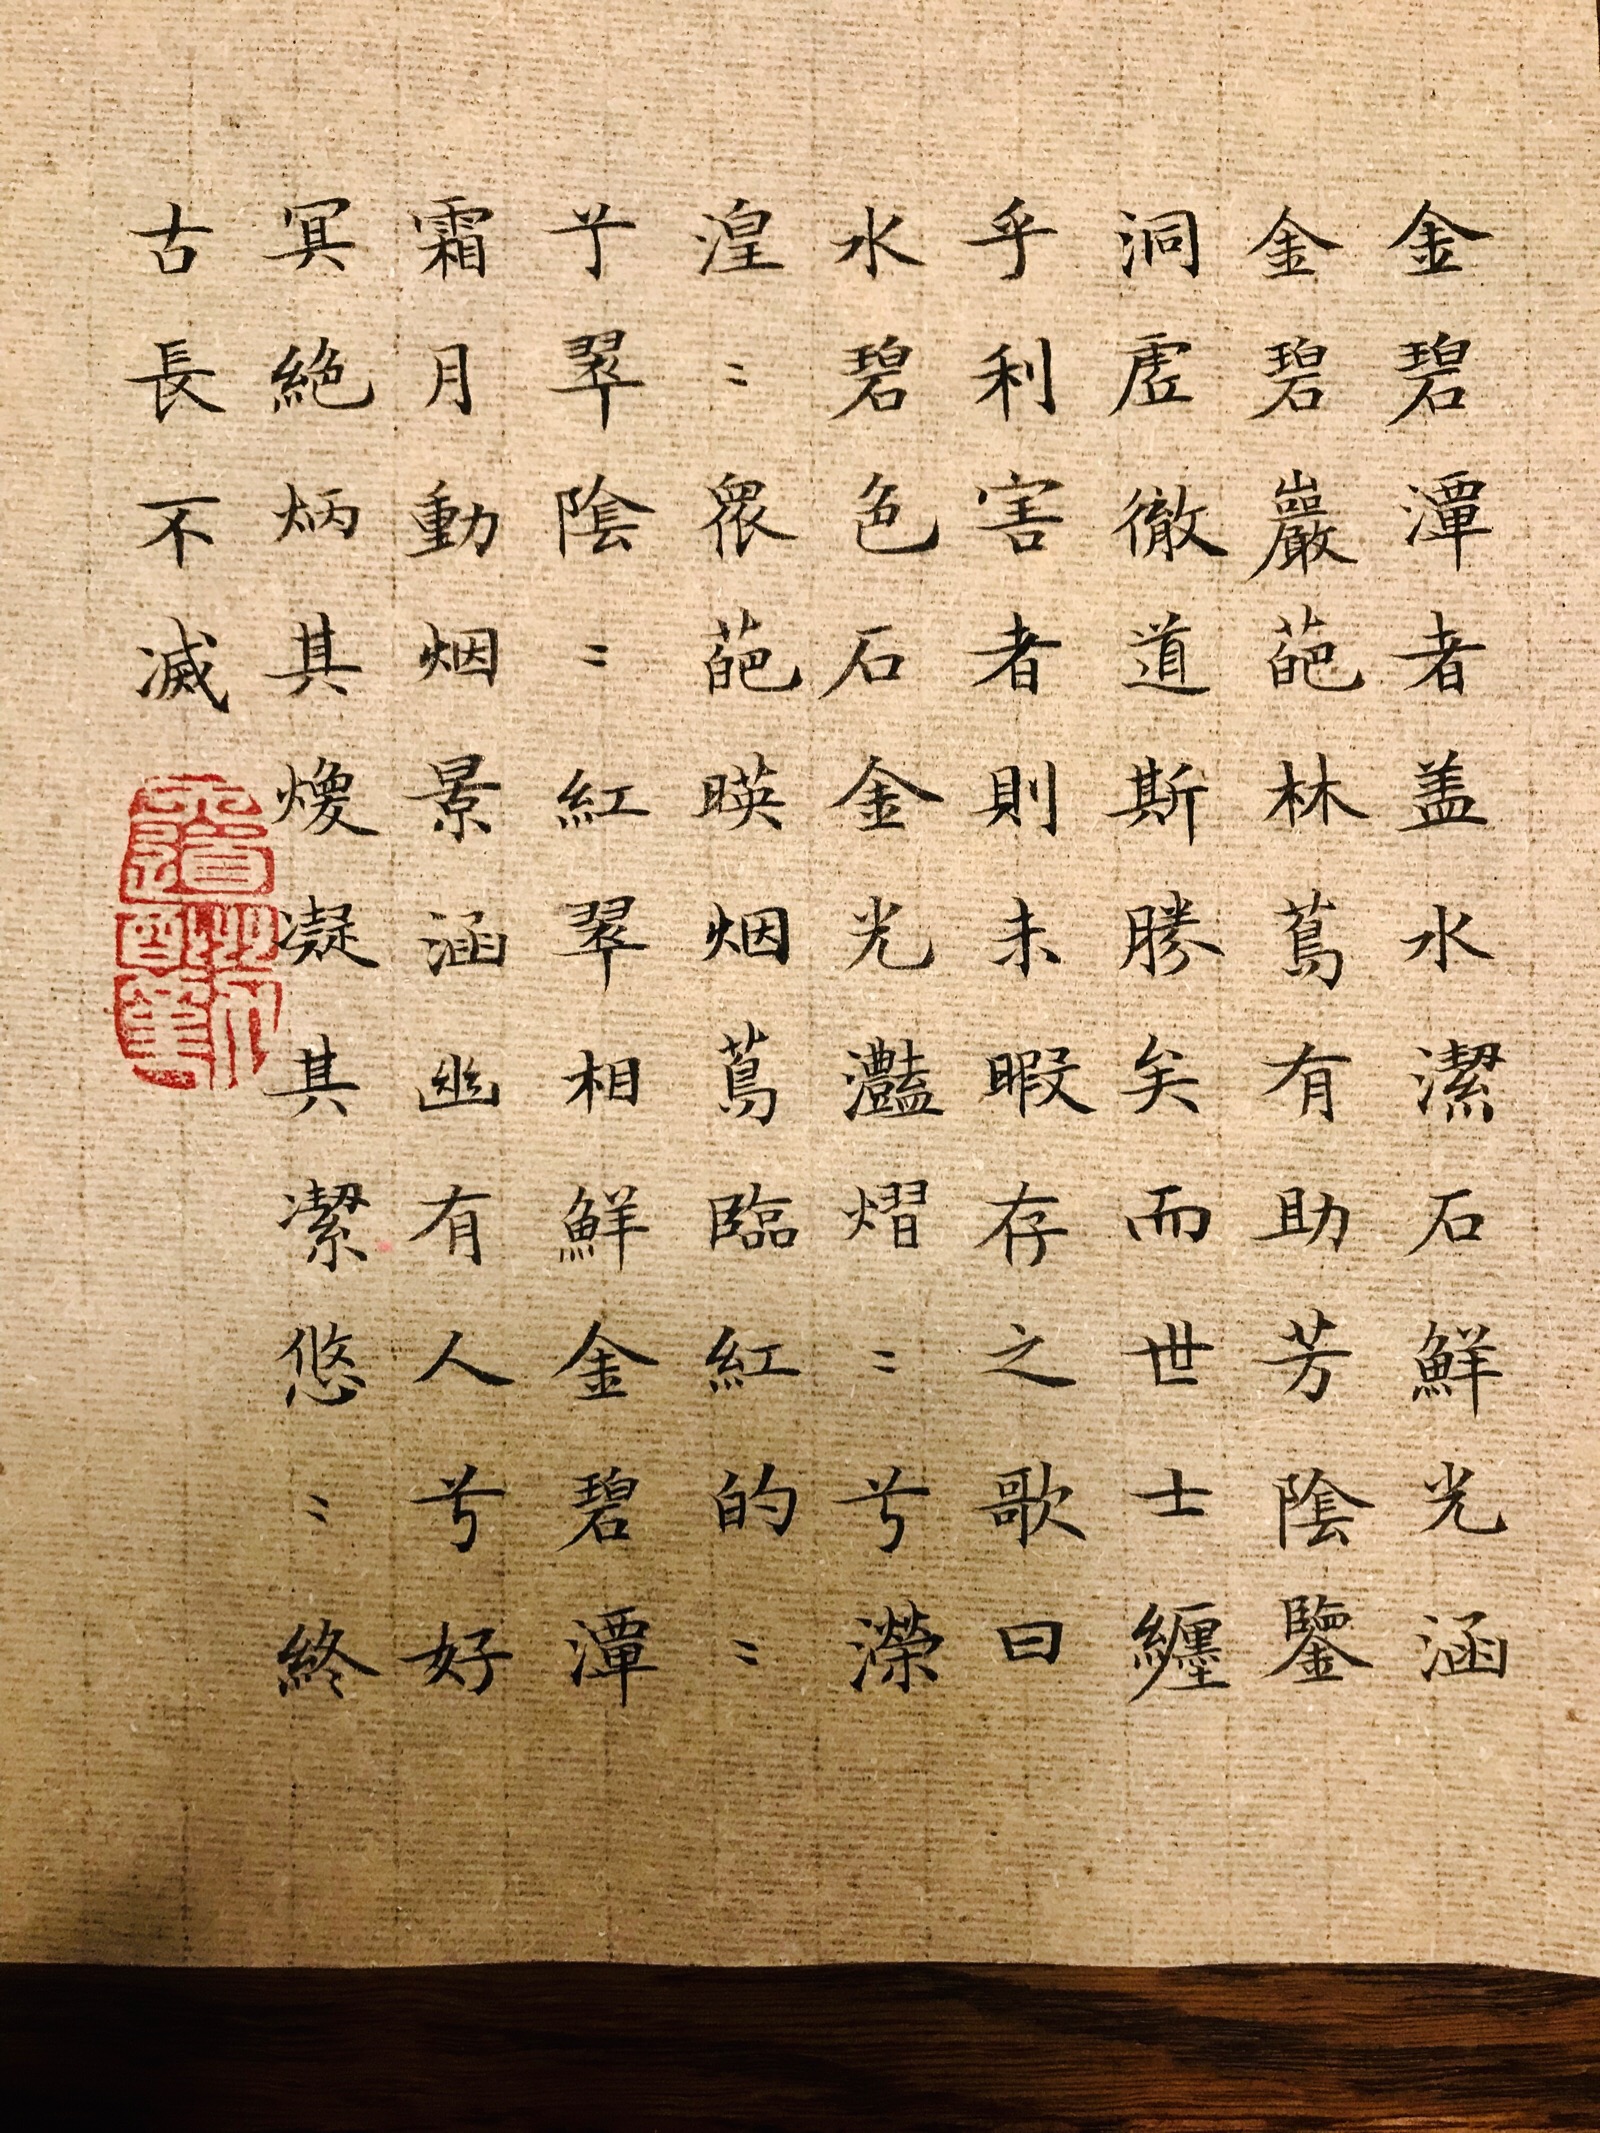 金碧潭者盖水潔石鮮光涵
金碧巖葩林蔦有助芳陰鑒
洞虛徹道斯勝矣而世士纏
乎利害者則未暇存之歌曰
水碧色石金光灩熠〻兮濴
湟〻眾葩暎烟蔦臨紅的〻
兮翠陰〻紅翠相鮮金碧潭
霜月動烟景涵幽有人兮好
冥絕炳其煥凝其潔悠〻終
古長不滅